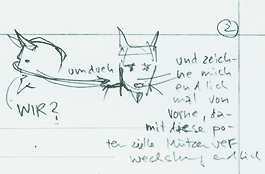 2
um auch
WIR?
und zeich-
ne mich
endlich
mal von
vorne, da-
mit diese po-
tenzielle Mützenver
wechslung endlich